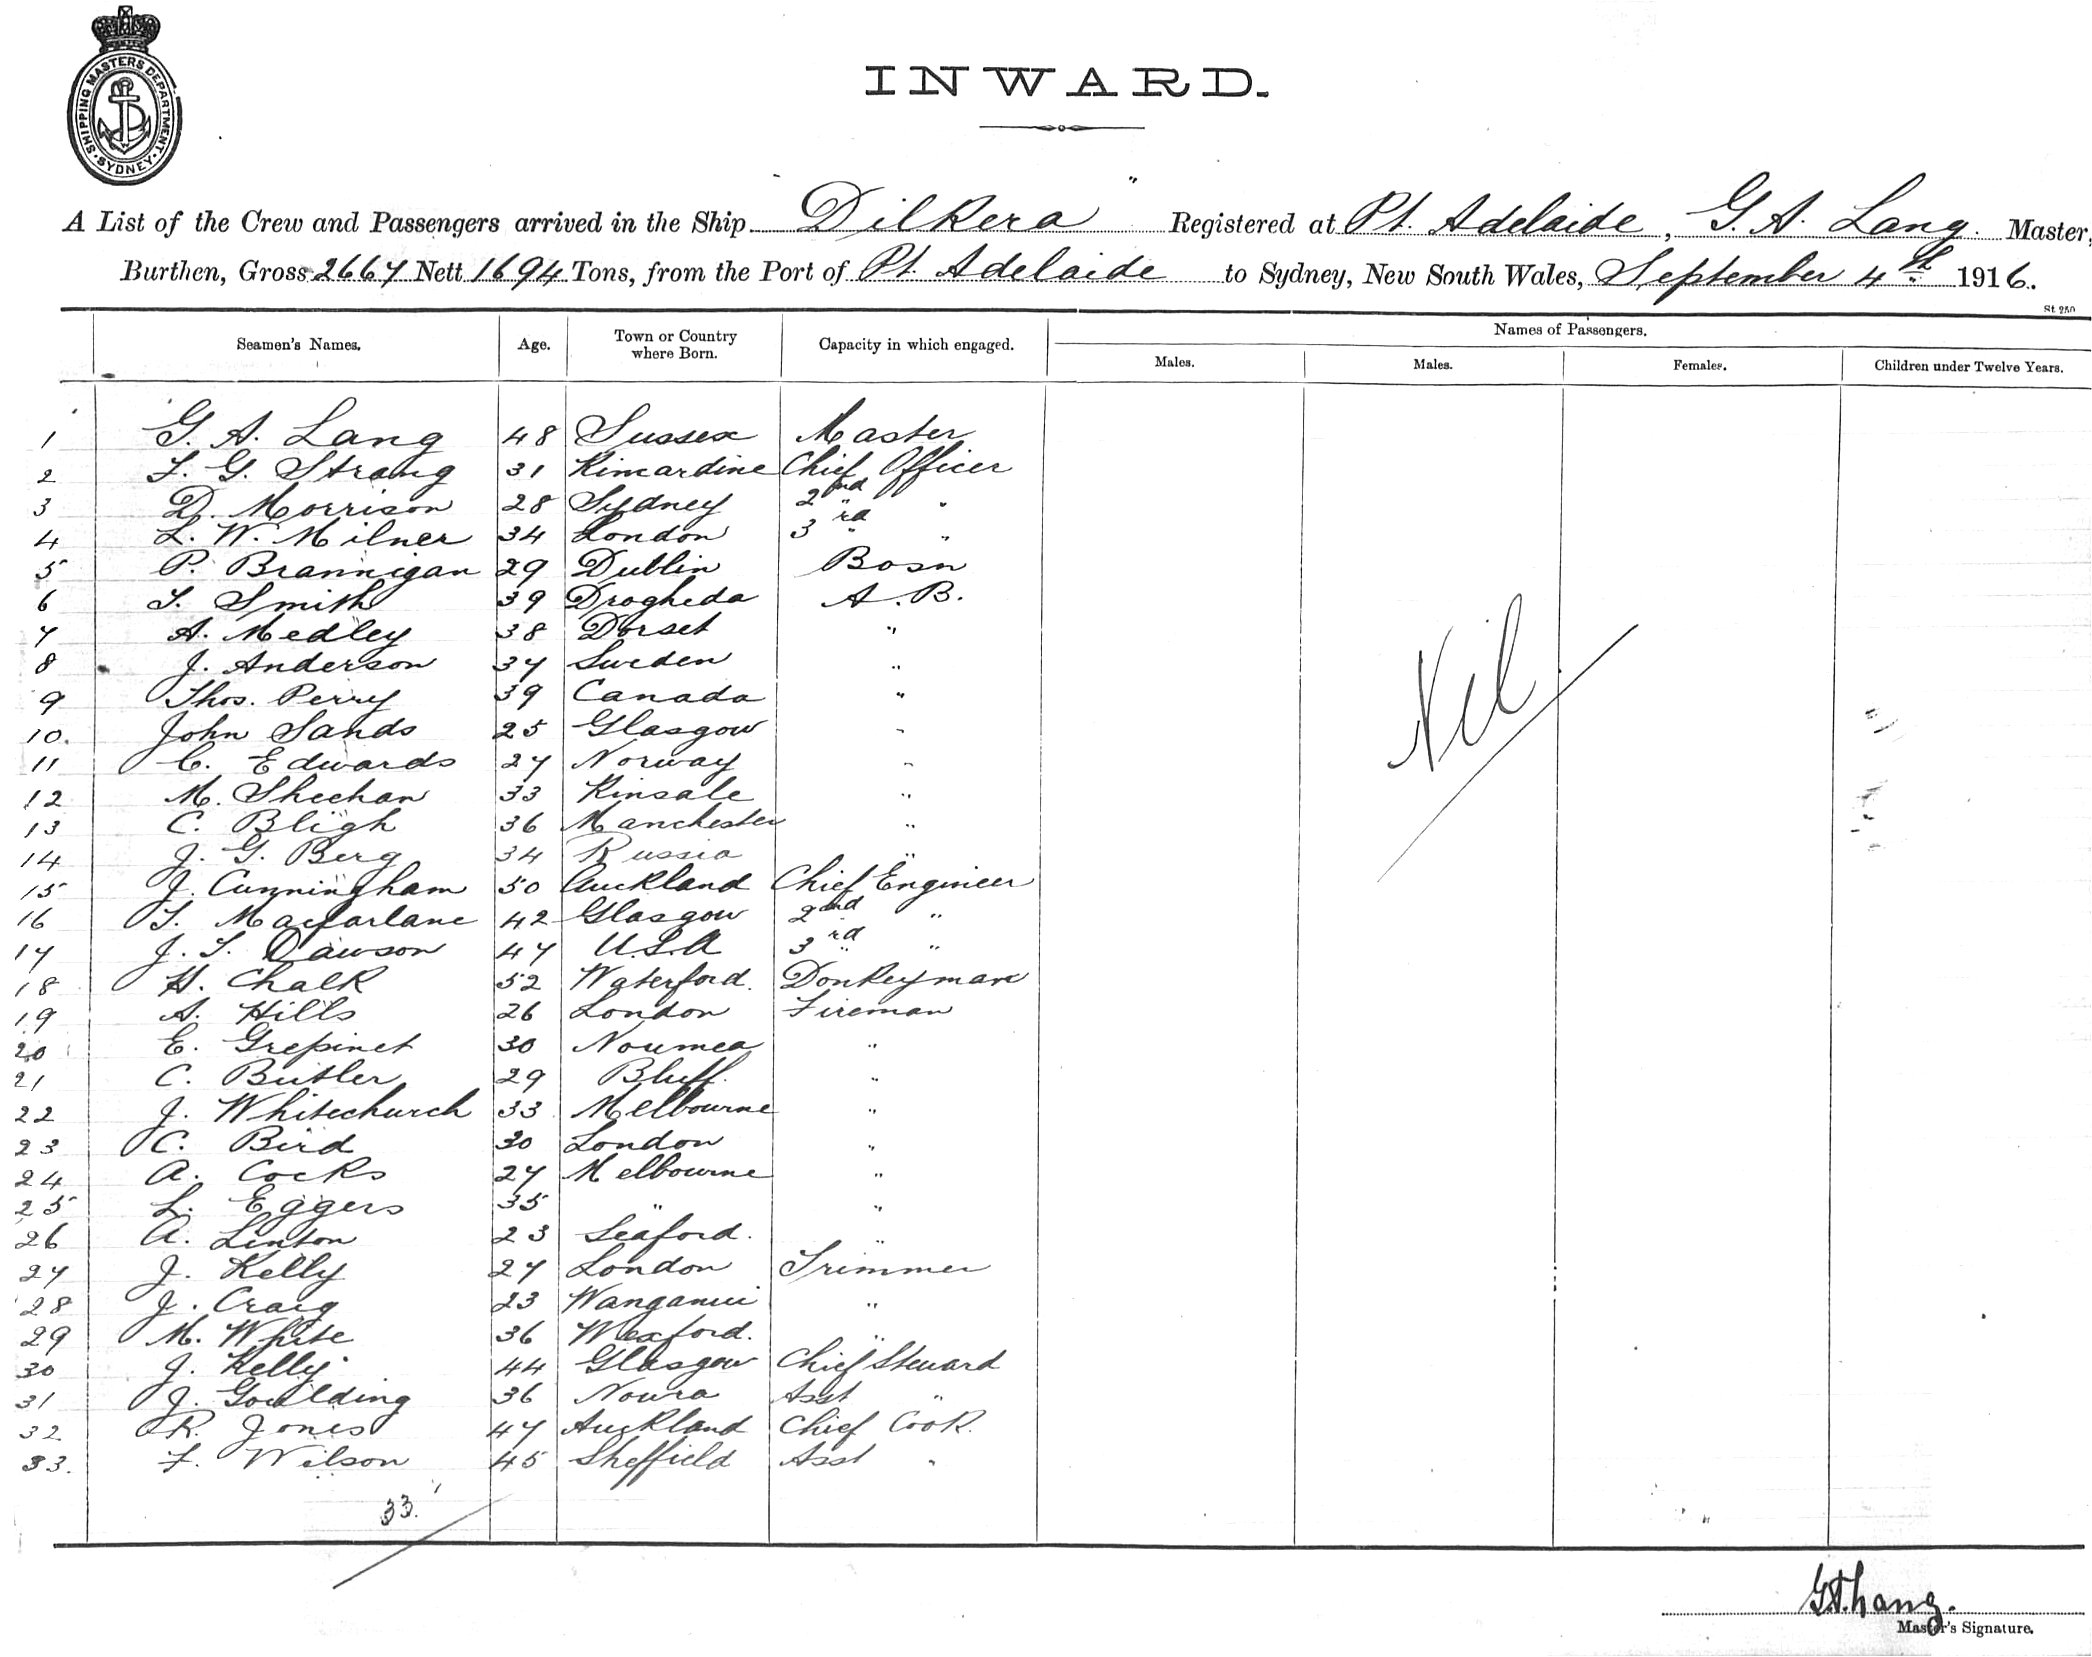 SHIPPING MASTERS DEPARTMENT · SYDNEY ·
INWARD.
A List of the Crew and Passengers arrived in the Ship Dilkera " Registered at Pt. Adelaide, G. A. Lang. Master,
Burthen, Gross 2667 Nett 1694 Tons, from the Port of Pt. Adelaide to Sydney, New South Wales, September 4th 1916.
St 250
Seamen's Names. Age. Town or Country where Born. Capacity in which engaged. Names of Passengers.
Males. Males. Females. Children under Twelve Years.
1 G. A. Lang 48 Sussex Master
2 F. G. Strang 31 Kincardine Chief Officer
3 D. Morrison 28 Sydney 2nd "
4 L. W. Milner 34 London 3rd "
5 P. Brannigan 29 Dublin Bosn
6 T. Smith 39 Drogheda A.B.
7 A. Medley 38 Dorset "
8 J. Anderson 37 Sweden "
9 Thos. Perry 39 Canada "
10. John Sands 25 Glasgow "
11 C. Edwards 27 Norway "
12 M. Sheehan 33 Kinsale "
13 C. Bligh 36 Manchester "
14 J. G. Berg 34 Russia "
15 J. Cunningham 50 Auckland Chief Engineer
16 T. Macfarlane 42 Glasgow 2nd "
17 J. T. Dawson 47 U.S.A 3rd "
18 H. Chalk 52 Waterford. Donkeyman
19 A. Hills 26 London Fireman
20 E. Grepinet 30 Noumea "
21 C. Butler 29 Bluff. "
22 J. Whitechurch 33 Melbourne "
23 C. Bird 30 London "
24 A. Cocks 27 Melbourne "
25 L. Eggers 35 " "
26 A. Linton 23 Seaford. "
27 J. Kelly 27 London Trimmer
28 J. Craig 23 Wanganui "
29 M. White 36 Wexford. "
30 J. Kelly 44 Glasgow Chief Steward
31 J. Goulding 36 Nowra Asst "
32 R. Jones 47 Auckland Chief Cook.
33. F. Wilson 45 Sheffield Asst "
Nil
33.
G.A. Lang.
Master's Signature.